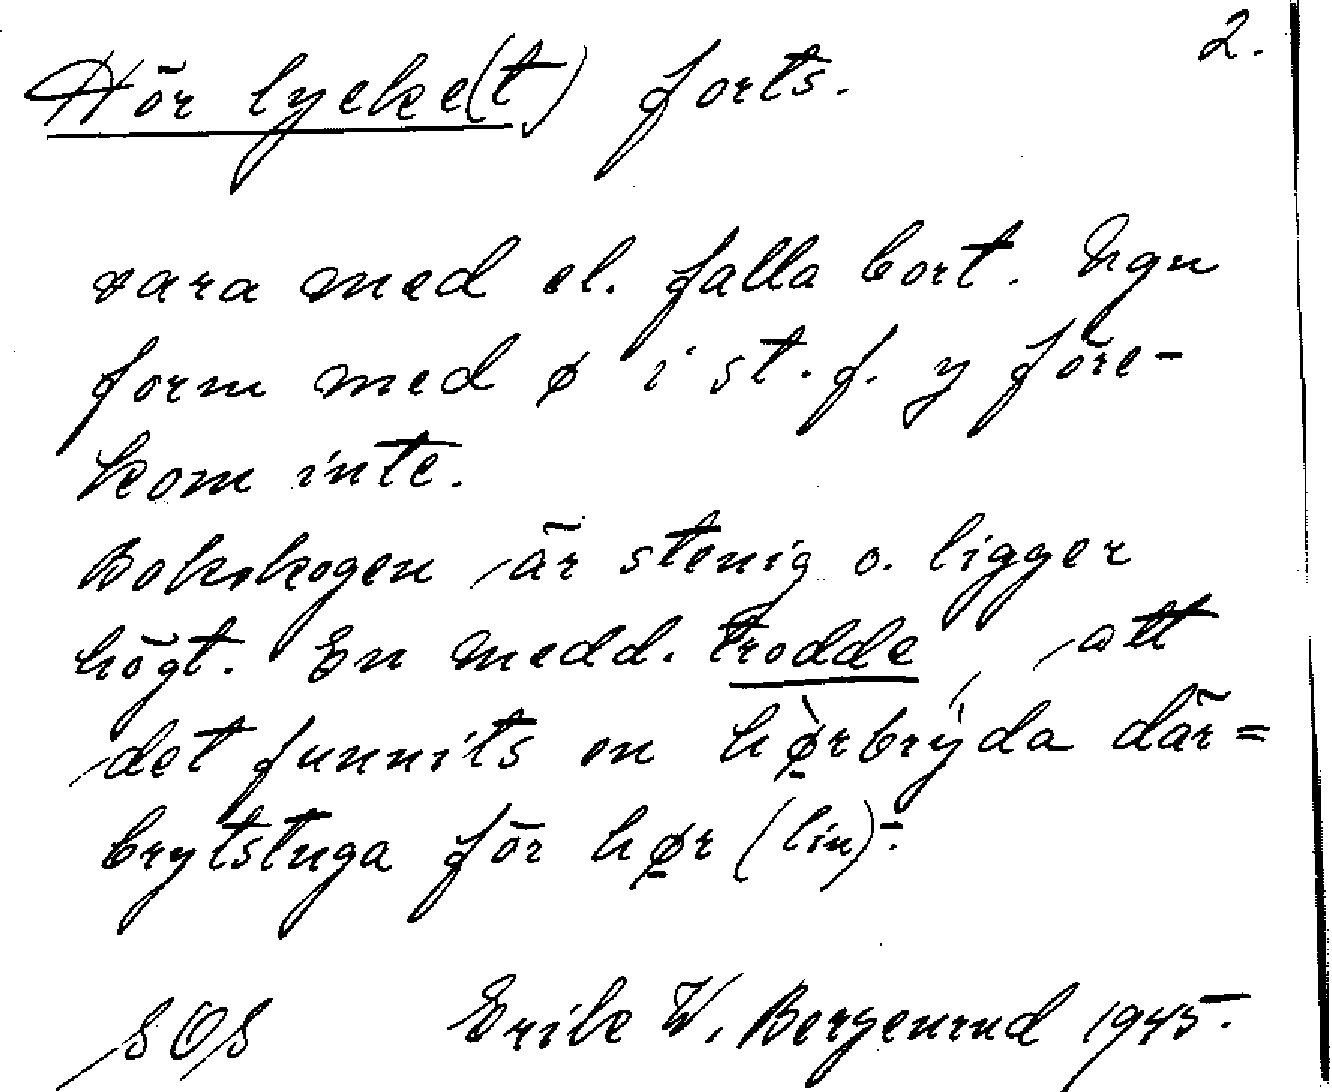 2.
Hör lycke(t) forts.
vara med el. falla bort. Ngn
form med ø i st. f. y före-
kom inte.
Bokskogen är stenig o. ligger
högt. En medd. trodde, att
det funnits en hø̱̀rbrýda där=
brytstuga för hø̱r (lin)-.
SOS Erik W. Bergenrud 1945.